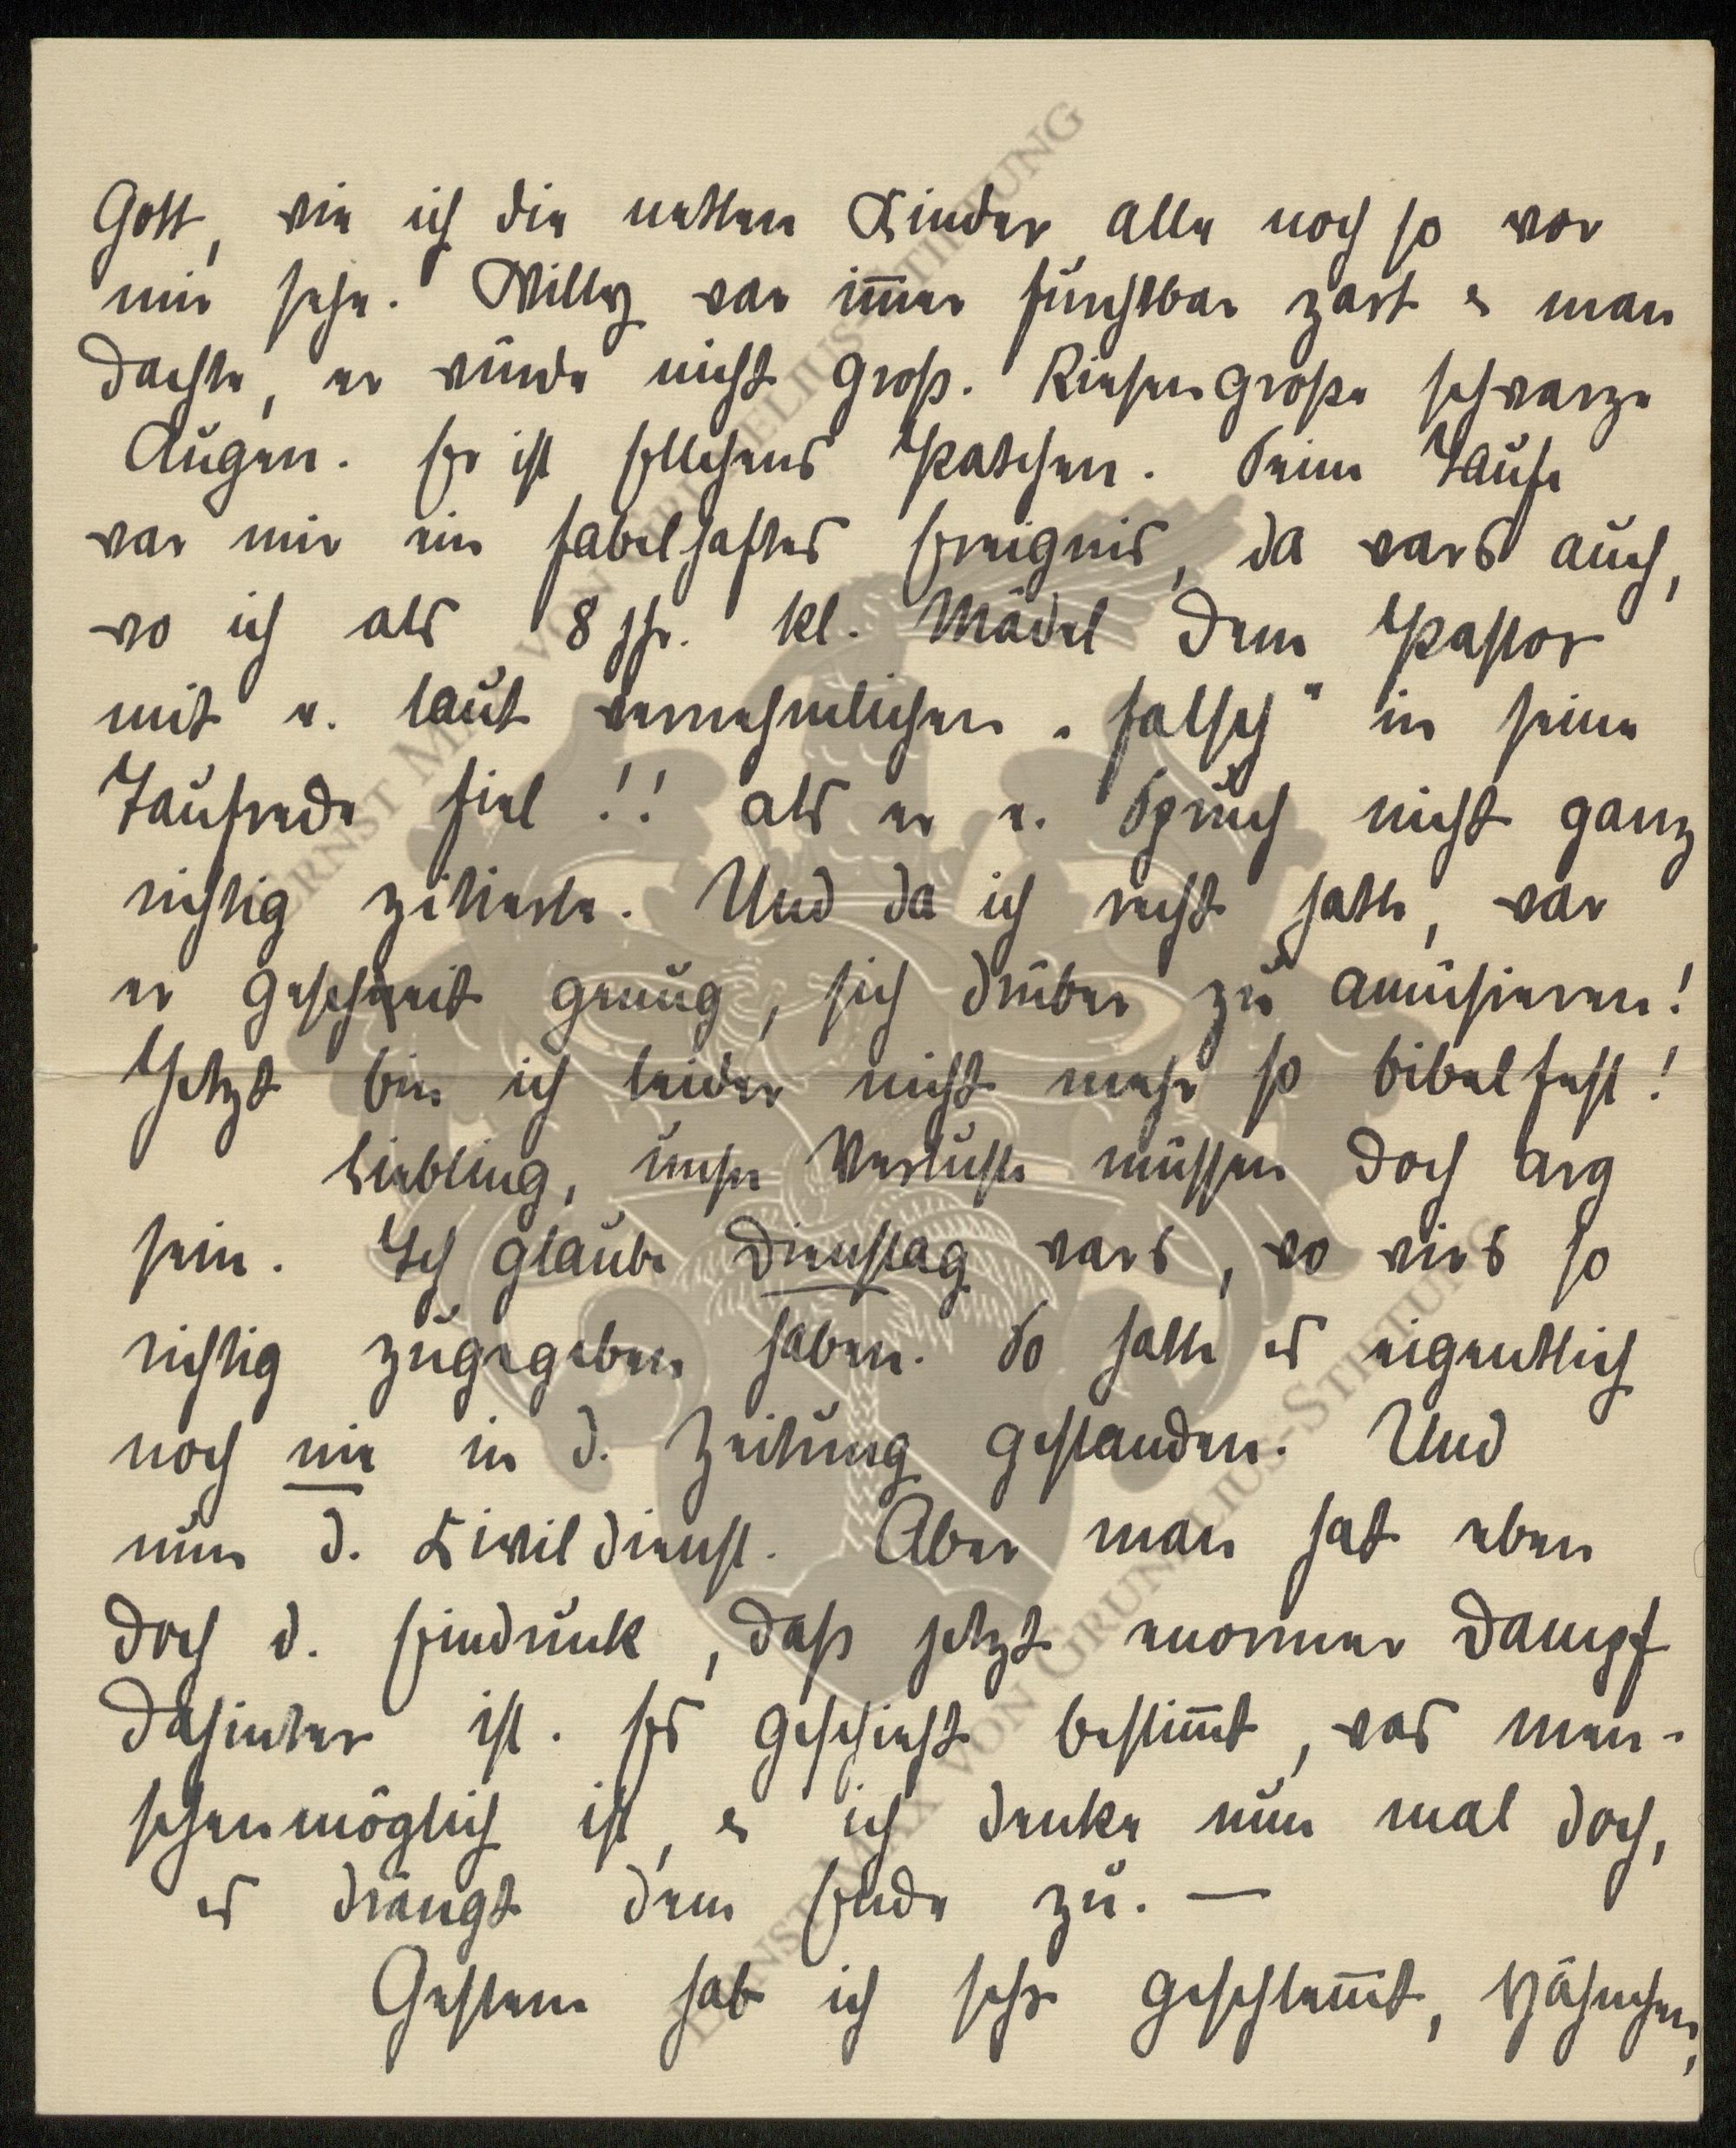 Gott, wie ich die netten Kinder alle noch so vor
mir sehe. Willy war im̄er furchtbar zart & man
dachte, er würde nicht groß. Riesengroße schwarze
Augen. Er ist Ellchens Patchen. Seine Taufe
war mir ein fabelhaftes Ereignis, da wars auch,
wo ich als 8 jhr. kl. Mädel dem Pastor
mit e. laut vernehmlichen „falsch" in seine
Taufrede fiel!! als er e. Spruch nicht ganz
richtig zitierte. Und da ich recht hatte, war
er gescheit genug, sich drüber zu amüsieren!
Jetzt bin ich leider nicht mehr so bibelfest!
Liebling, unsre Verluste müssen doch arg
sein. Ich glaube Dienstag wars, wo wirs so
richtig zugegeben haben. So hatte es eigentlich
noch nie in d. Zeitung gestanden. Und
nun d. Civildienst. Aber man hat eben
doch d. Eindruck, daß jetzt enormer Dampf
dahinter ist. Es geschieht bestim̄t, was men-
schenmöglich ist, & ich denke nun mal doch,
es drängt dem Ende zu. —
Gestern hab ich sehr geschlem̄t, Hähnchen,
ERNST MAX VON GRUNELIUS-STIFTUNG
ERNST MAX VON GRUNELIUS-STIFTUNG